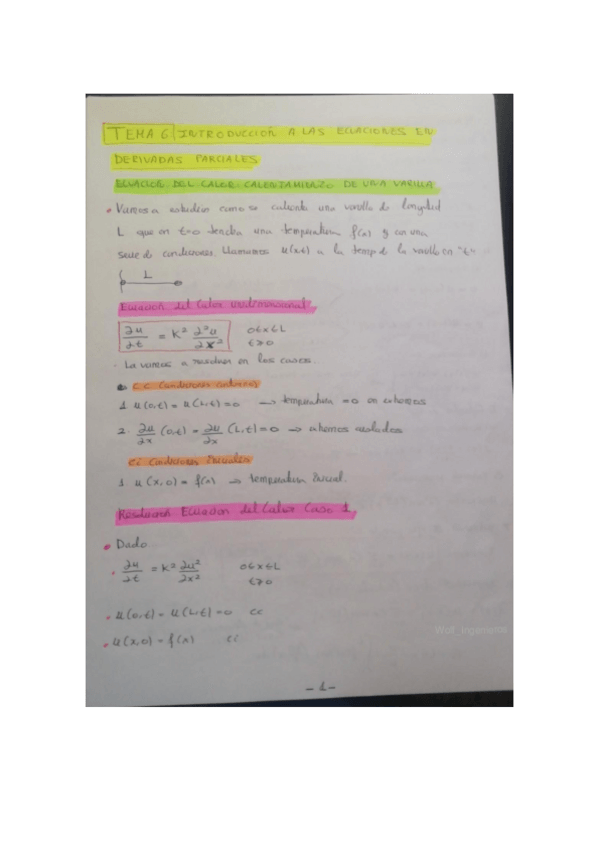 TEMA 6 INTRODUCCIÓN A LAS ECUACIONES EN
DERIVADAS PARCIALES
ECUACION DEL CALOR CALENTAMIENTO DE UNA VARILLA
• Vamos a estudiar como se calienta una varilla de longitud
L que en t=0 tendra una temperatura f(x) y con una
serie de condiciones. Llamamos u(x,t) a la temp de la varilla en "t"
L
Ecuacion del Calor Unidimensional
∂u/∂t = K² ∂²u/∂x² 0≤x≤L
t≥0
· La vamos a resolver en los casos.
C.C Condiciones contorno
1 u(0,t) = u(L,t) = 0 → temperatura = 0 en extremos
2. ∂u/∂x (0,t) = ∂u/∂x (L,t) = 0 → extremos aislados
Ci Condiciones Iniciales
1 u(x,0) = f(x) → temperatura Inicial.
Resolucion Ecuacion del Calor Caso 1
• Dado
· ∂u/∂t = K² ∂u²/∂x² 0≤x≤L
t≥0
· u(0,t) = u(L,t) = 0 CC
· u(x,0) = f(x) CI
Wolf_Ingenieros
- 1 -